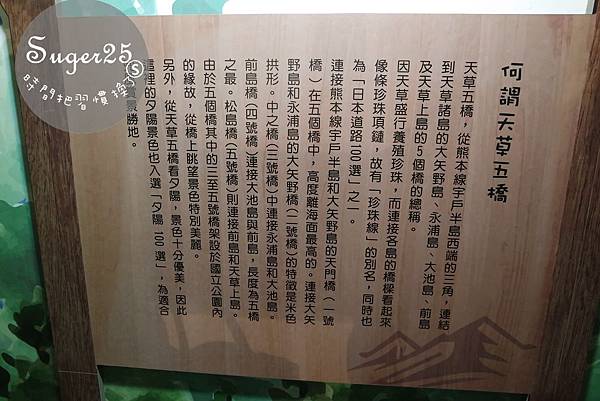 何謂天草五橋
天草五橋，從熊本線宇戶半島西端的三角，連結
到天草諸島的大矢野島、永浦島、大池島、前島
及天草上島的5個橋的總稱。
因天草盛行養殖珍珠，而連接各島的橋樑看起來
像條珍珠項鏈，故有「珍珠線」的別名，同時也
為「日本道路100選」之一。
連接熊本線宇戶半島和大矢野島的天門橋（一號
橋）在五個橋中，高度離海面最高的。連接大矢
野島和永浦島的大矢野橋（二號橋）的特徵是米色
拱形。中之橋（三號橋）中連接永浦島和大池島。
前島橋（四號橋）連接大池島與前島，長度為五橋
之最。松島橋（五號橋）則連接前島和天草上島。
由於五個橋其中的三至五號橋架設於國立公園內
的緣故，從橋上眺望景色特別美麗。
另外，從天草五橋看夕陽，景色十分優美，因此
這裡的夕陽景色也入選「夕陽100選」，為適合
賞景勝地。
Suger25
S
時門把習慣